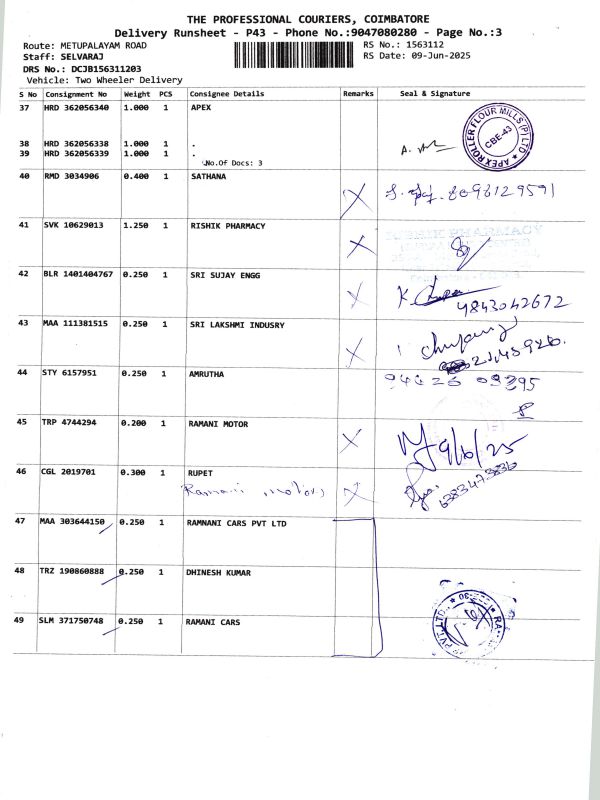 THE PROFESSIONAL COURIERS, COIMBATORE
Delivery Runsheet - P43 - Phone No.:9047080280 - Page No.:3
Route: METUPALAYAM ROAD
RS No.: 1563112
Staff: SELVARAJ
RS Date: 09-Jun-2025
DRS No.: DCJB156311203
Vehicle: Two Wheeler Delivery
S No Consignment No Weight PCS Consignee Details Remarks Seal & Signature
37 HRD 362056340 1.000 1 APEX
APEX ROLLER FLOUR MILLS (P) LTD
CBE-43
38 HRD 362056338 1.000 1 .
39 HRD 362056339 1.000 1 .
No.Of Docs: 3
40 RMD 3034906 0.400 1 SATHANA X
8096129591
41 SVK 10629013 1.250 1 RISHIK PHARMACY X
42 BLR 1401404767 0.250 1 SRI SUJAY ENGG X
9843042672
43 MAA 111381515 0.250 1 SRI LAKSHMI INDUSRY X
44 STY 6157951 0.250 1 AMRUTHA
45 TRP 4744294 0.200 1 RAMANI MOTOR X
9/6/25
46 CGL 2019701 0.300 1 RUPET X
Ramani motors
47 MAA 303644150 0.250 1 RAMNANI CARS PVT LTD
48 TRZ 190860888 0.250 1 DHINESH KUMAR
49 SLM 371750748 0.250 1 RAMANI CARS
PVT. LTD.